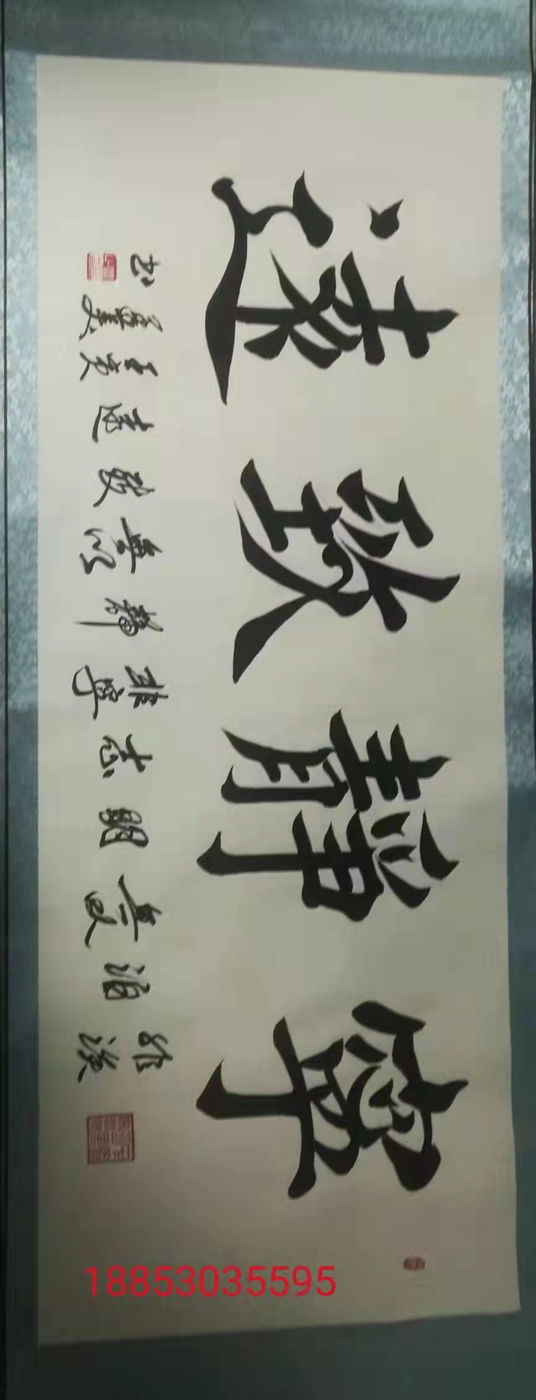 寧靜致遠
非淡泊無以明志非寧靜無以致遠王书
18853035595